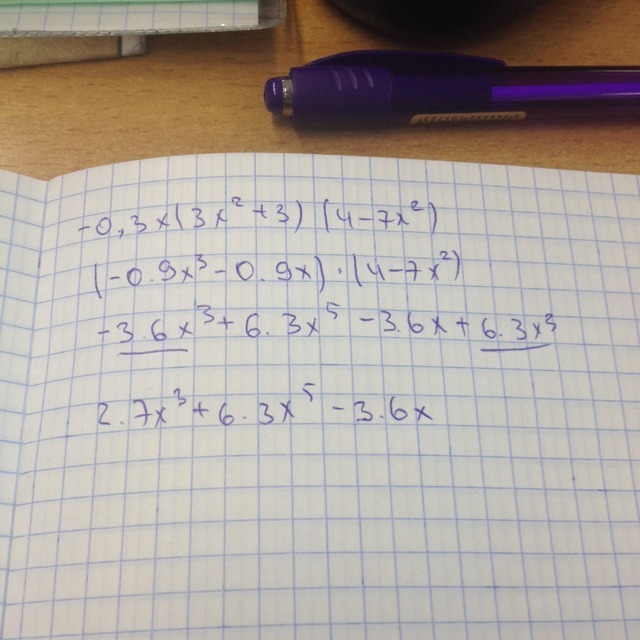 -0,3x(3x²+3)(4-7x²)
(-0.9x³-0.9x)·(4-7x²)
-3.6x³+6.3x⁵-3.6x+6.3x³
2.7x³+6.3x⁵-3.6x